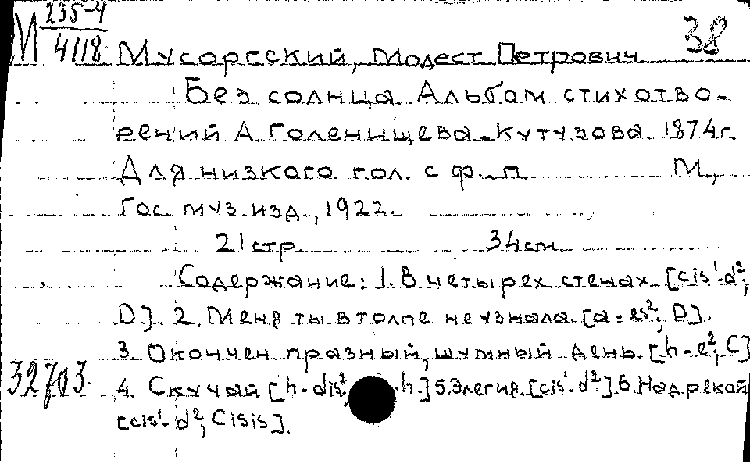 М 235-4
4118
38
Мусоргский, Модест Петрович
Без солнца. Альбом стихотво-
рений А. Голенищева-Кутузова. 1874г.
Для низкого гол. с ф.-п. М.,
Гос. муз. изд., 1922.
21 стр. 34 см.
Содержание: 1. В четырех стенах. [cis¹-d²,
D]. 2. Меня ты в толпе не узнала. [a-es², D].
3. Окончен празный, шумный день. [h-e², C]
32703
4. Скучай [h-dis², h.] 5. Элегия. [cis¹-d²]. 6. Над рекой
[cis¹-d², Cisis].